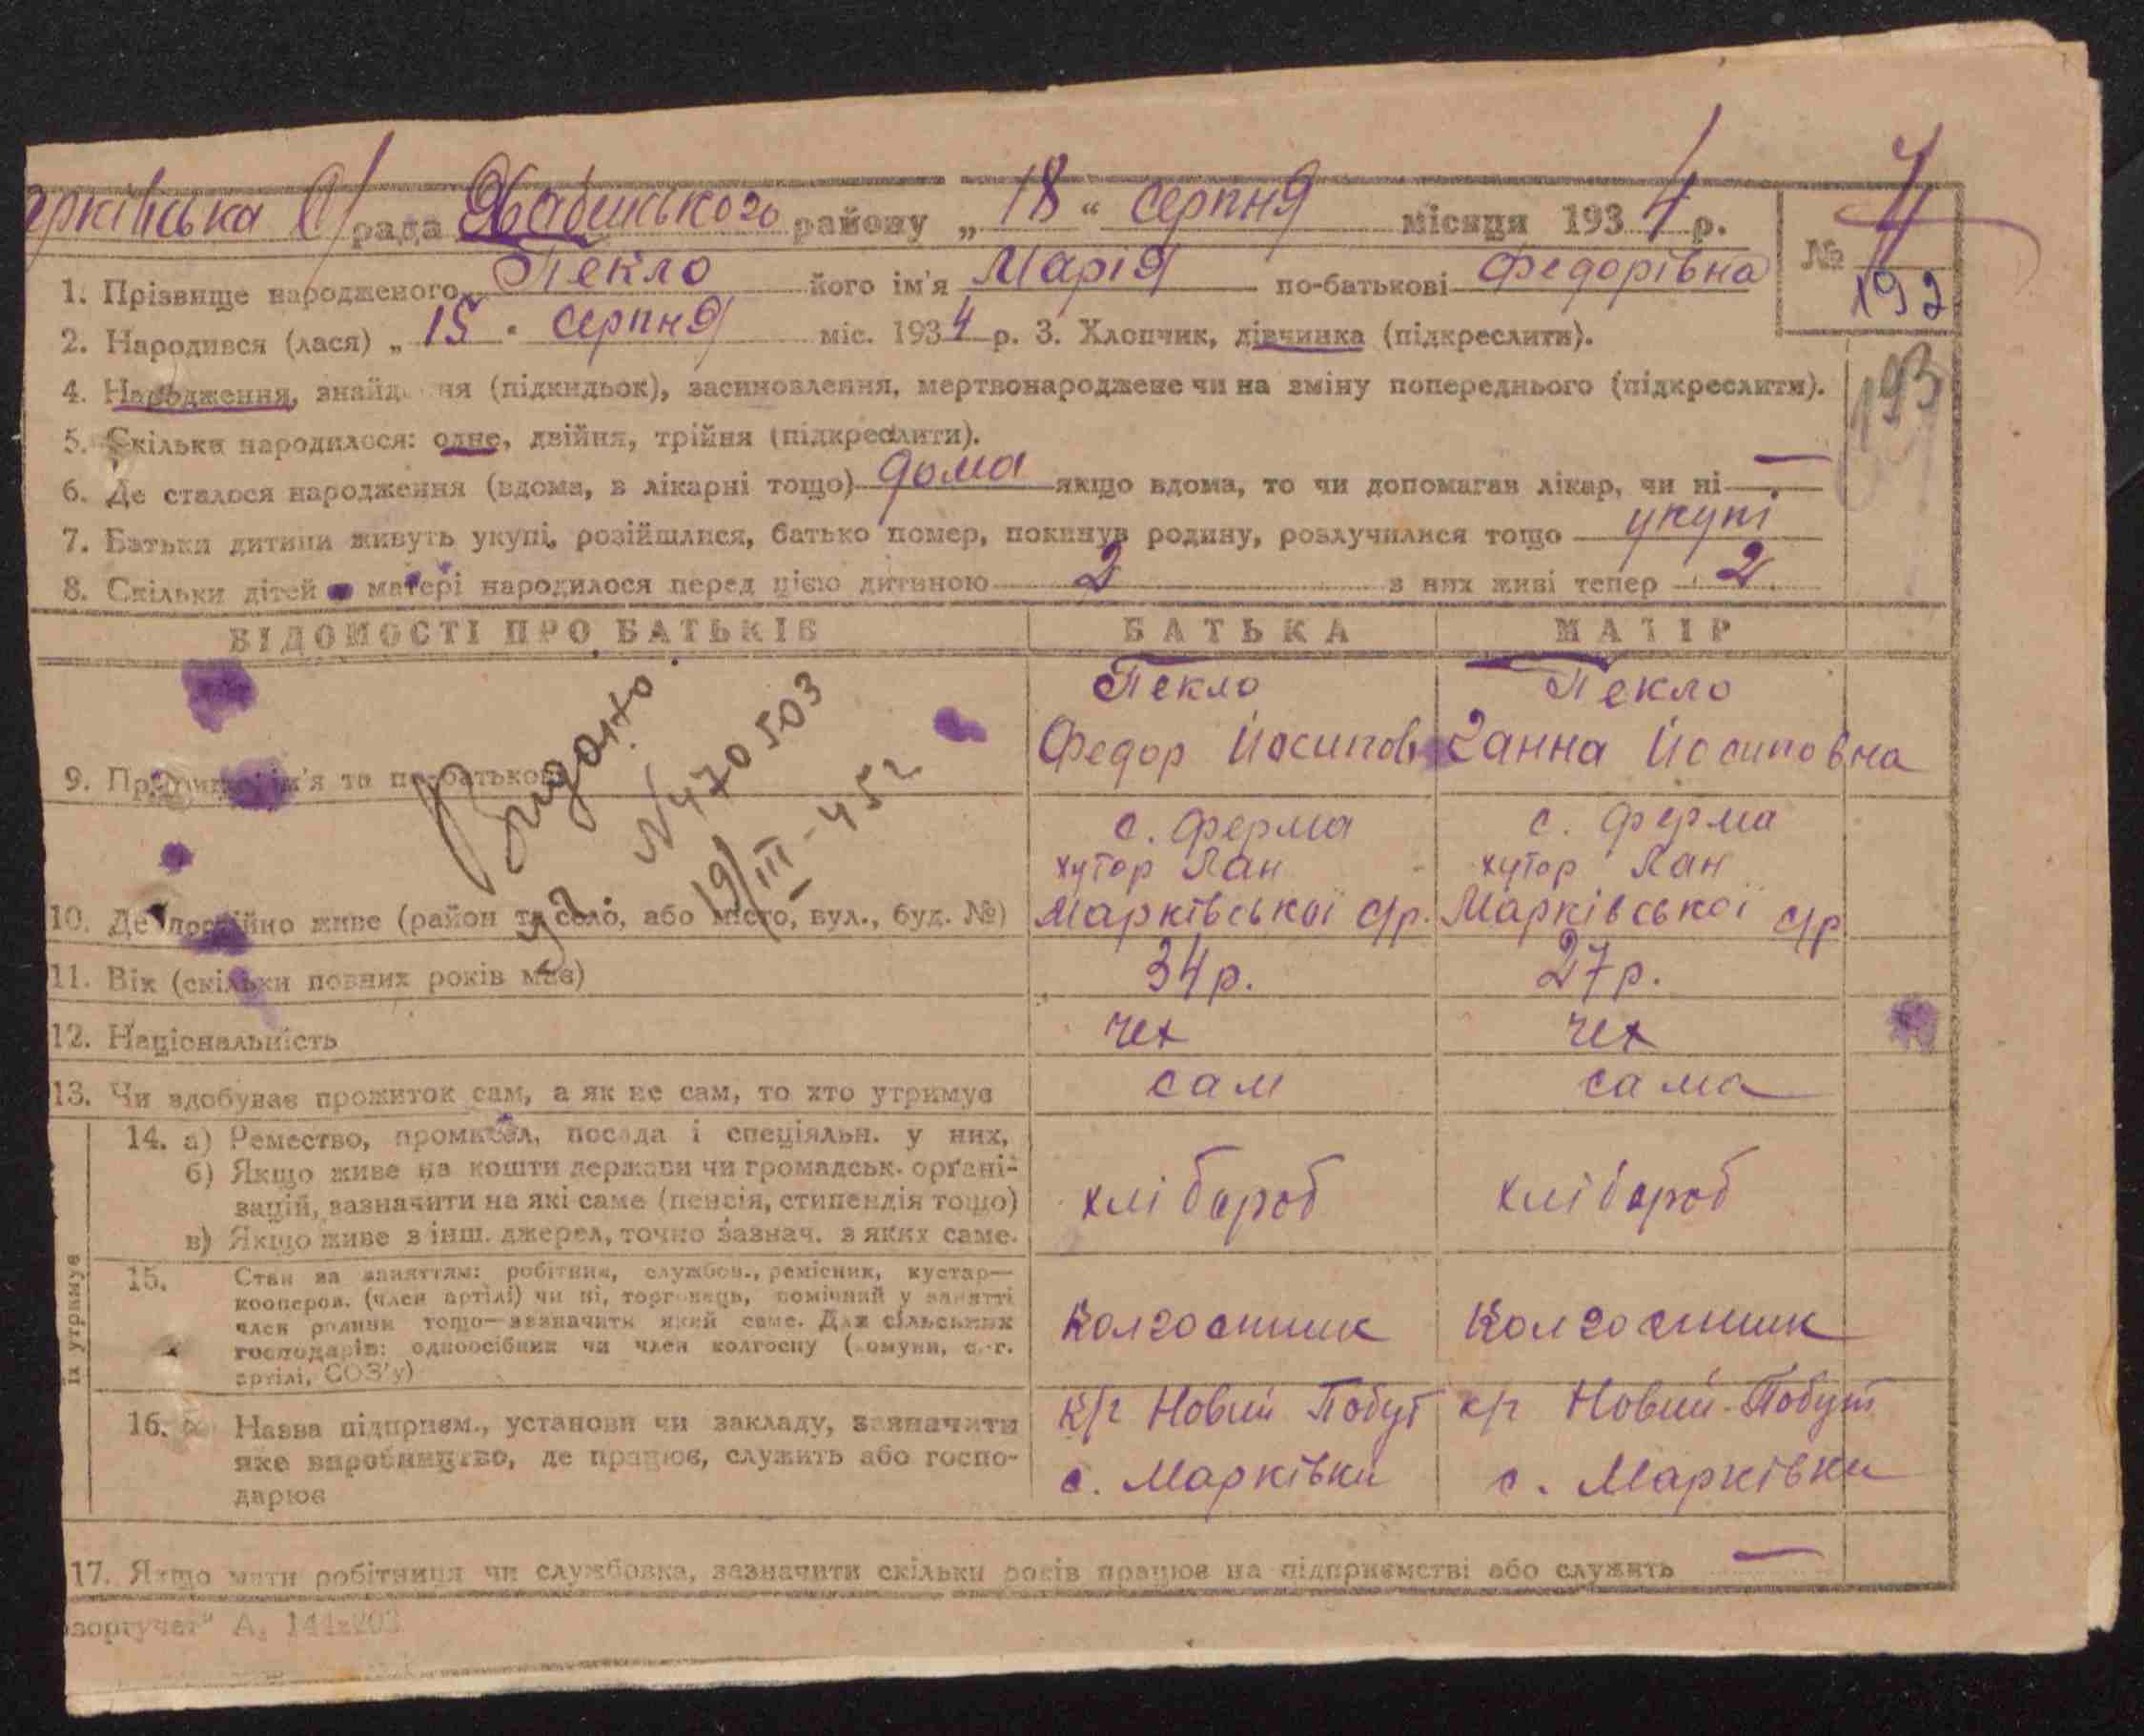 рківська С/рада Жабинського району „ 18 “ серпня місяця 1934 р. № 4
1. Прізвище народженого Пекло його ім'я Марія по-батькові Федорівна 192
2. Народився (лася) „ 15 " серпня міс. 1934 р. 3. Хлопчик, дівчинка (підкреслити).
4. Народження, знайдення (підкидьок), засиновлення, мертвонароджене чи на зміну попереднього (підкреслити). 193
5. Скільки народилося: одне, двійня, трійня (підкреслити).
6. Де сталося народження (вдома, в лікарні тощо) дома якщо вдома, то чи допомагав лікар, чи ні —
7. Батьки дитини живуть укупі, розійшлися, батько помер, покинув родину, розлучилися тощо укупі
8. Скільки дітей у матері народилося перед цією дитиною 2 з них живі тепер 2
ВІДОМОСТІ ПРО БАТЬКІВ БАТЬКА МАТІР
Пекло Пекло
9. Прізвище, ім'я та по-батькові Федор Йосипов Ганна Йосиповна
Видано
№ 470503
19/III-452
с. Ферма с. Ферма
хутор Лан хутор Лан
10. Де постійно живе (район та село, або місто, вул., буд. №) Марківської с/р. Марківської с/р
11. Вік (скільки повних років має) 34 р. 27 р.
12. Національність чех чех
13. Чи здобуває прожиток сам, а як не сам, то хто утримує сам сама
14. а) Ремество, промисел, посада і спеціяльн. у них,
б) Якщо живе на кошти держави чи громадськ. орґані-
зацій, зазначити на які саме (пенсія, стипендія тощо) хлібороб хлібороб
в) Якщо живе з інш. джерел, точно зазнач. з яких саме.
їх утримує
15. Стан за заняттям: робітник, службов., ремісник, кустар—
кооперов. (член артілі) чи ні, торговець, помічний у занятті
член родини тощо—зазначити який саме. Для сільських
господарів: одноосібник чи член колгоспу (комуни, с.-г.
артілі, СОЗ'у) Колгоспник Колгоспник
16. Назва підприєм., установи чи закладу, зазначити к/г Новий Побут к/г Новий Побут
яке виробництво, де працює, служить або госпо- с. Марківки с. Марківки
дарює
17. Якщо мати робітниця чи службовка, зазначити скільки років працює на підприємстві або служить —
зоргучет" А. 144-203